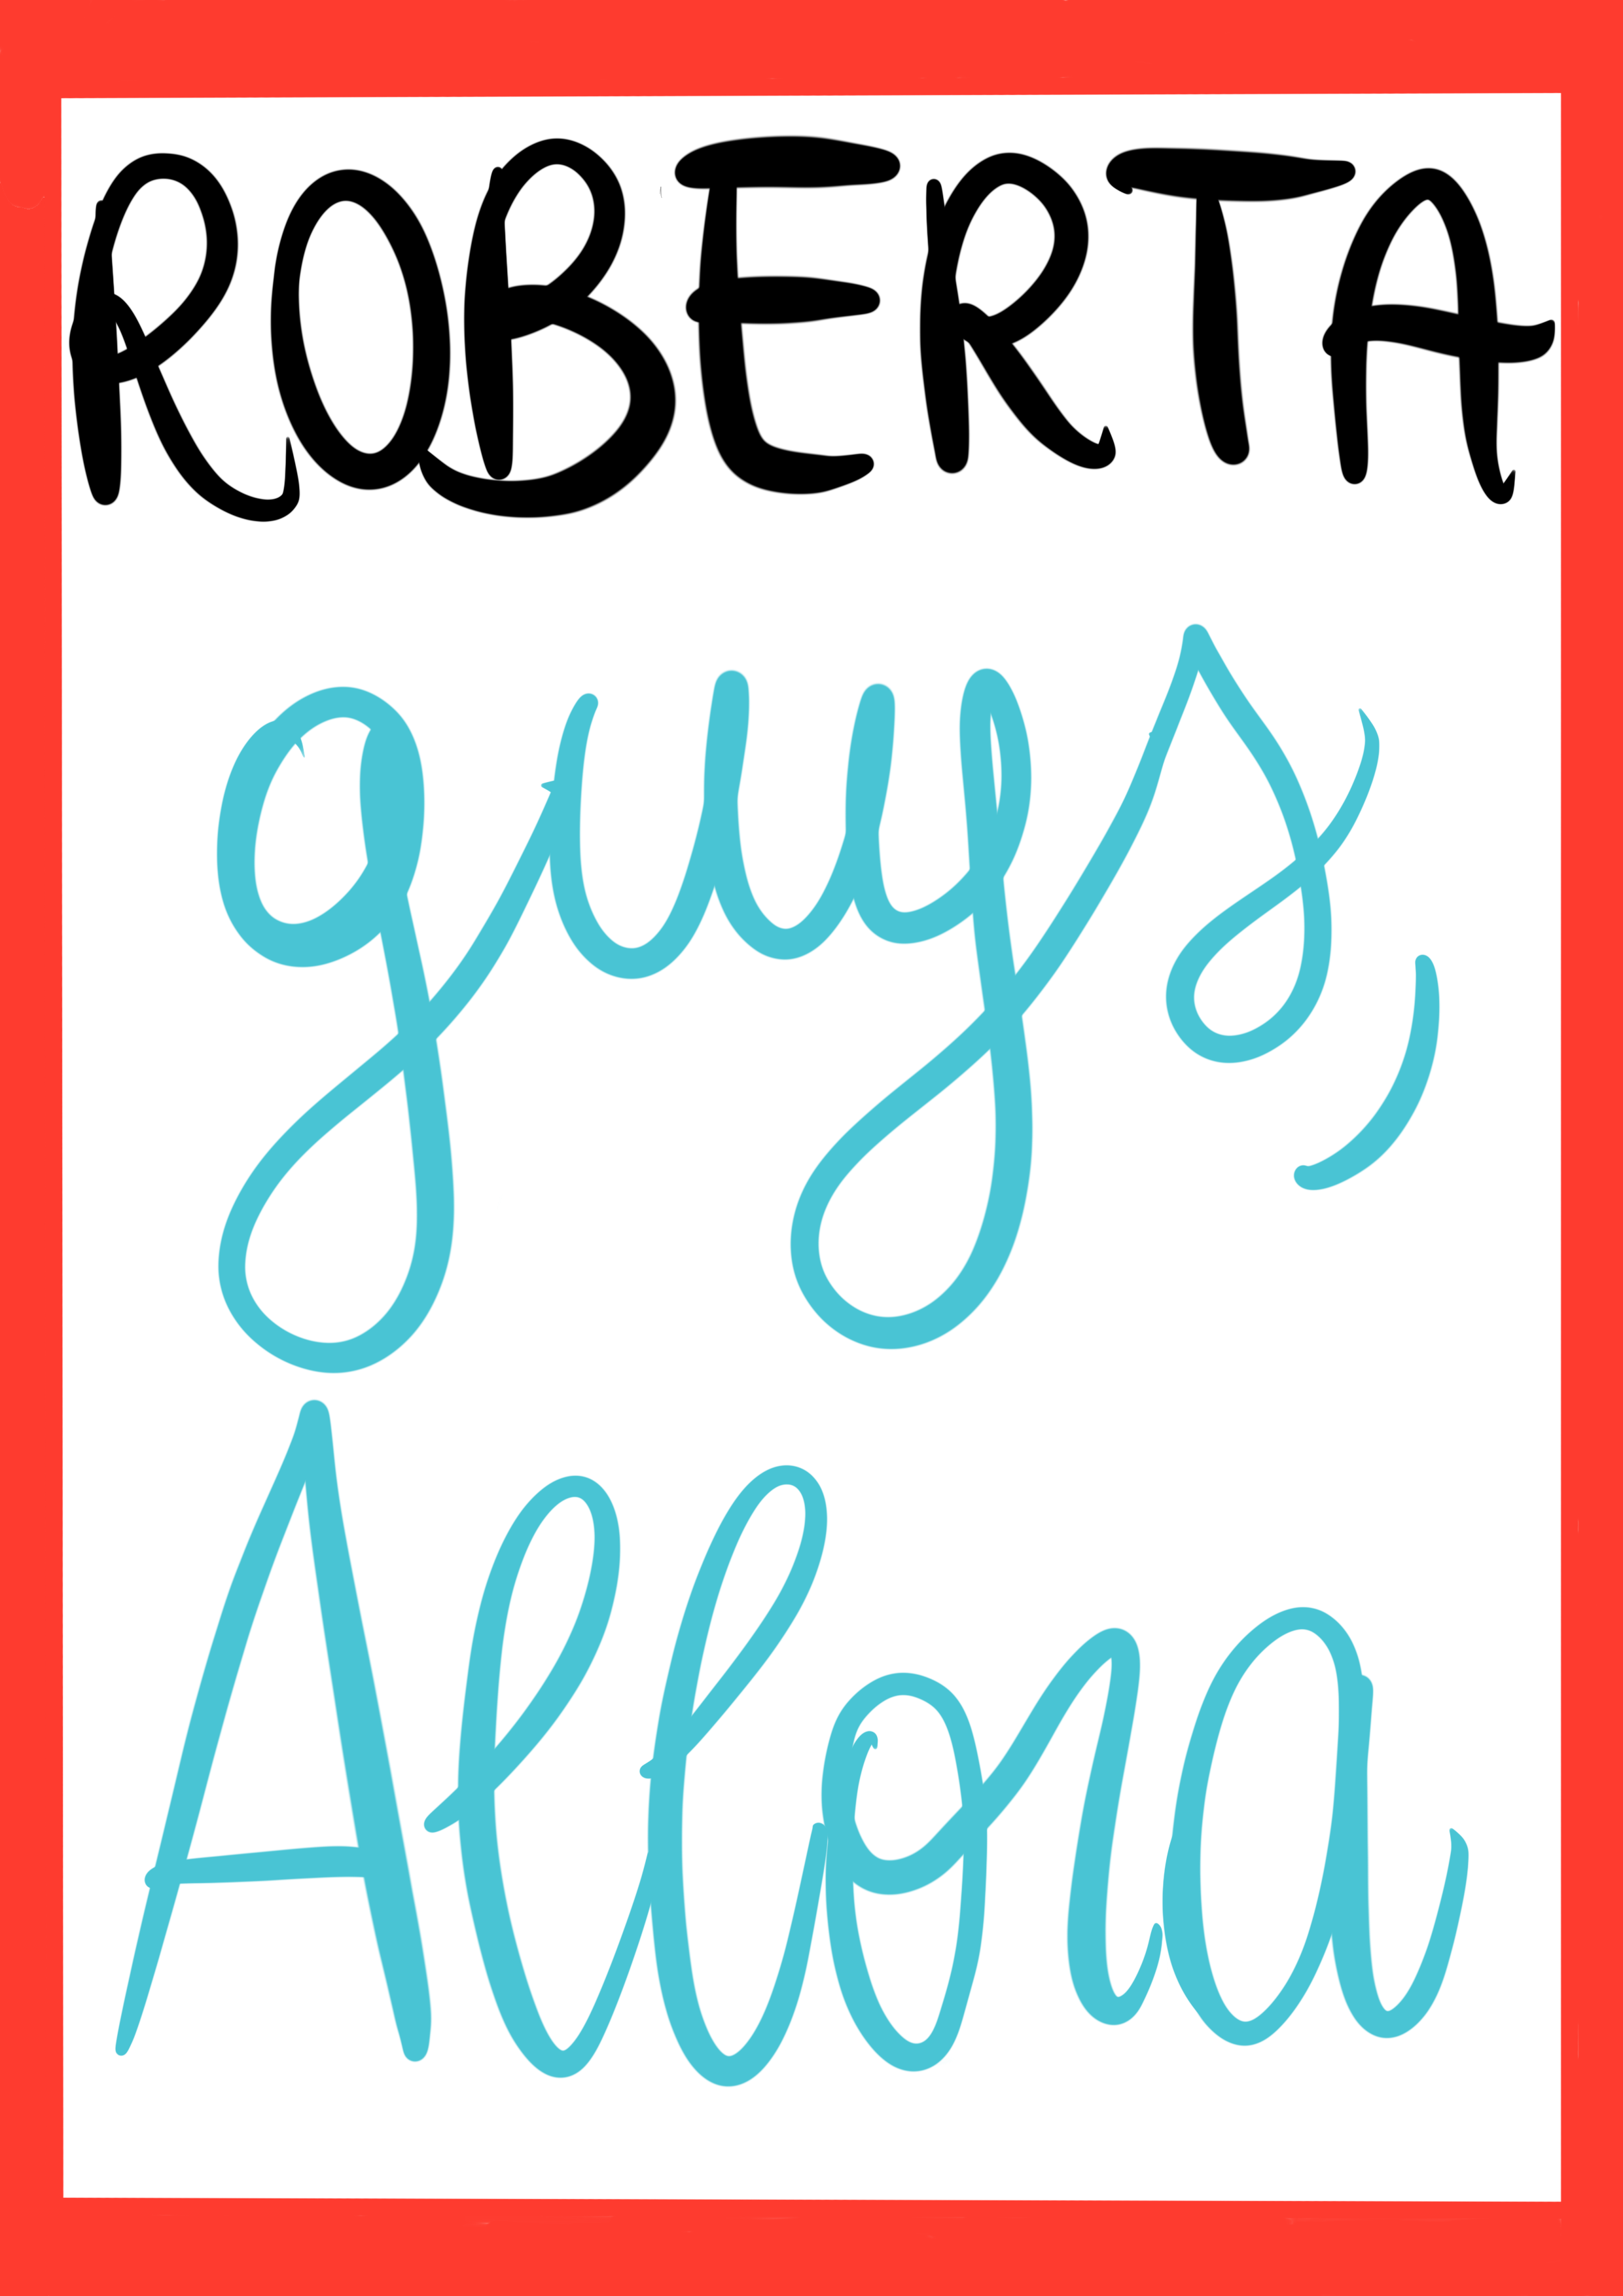 ROBERTA
guys,
Allona